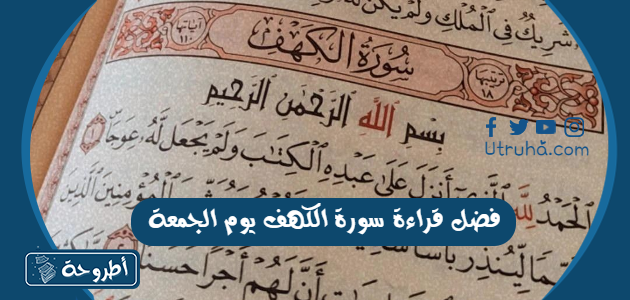 شَرِيكٌ فِي ٱلْمُلْكِ وَلَمْ يَكُن لَّهُ
آياتها ١١٠
سُورَةُ الكَهْفِ
ترتيبها ١٨
بِسْمِ ٱللَّهِ ٱلرَّحْمَٰنِ ٱلرَّحِيمِ
Utruha.com
ٱلْحَمْدُ لِلَّهِ ٱلَّذِىٓ أَنزَلَ عَلَىٰ عَبْدِهِ ٱلْكِتَٰبَ وَلَمْ يَجْعَل لَّهُۥ عِوَجَا ١
قَيِّمًا لِّيُنذِرَ بَأْسًا ٱلْمُؤْمِنِينَ ٱلَّذِينَ
أَنَّ لَهُمْ أَجْرًا حَسَنًا
فضل قراءة سورة الكهف يوم الجمعة
أطروحة